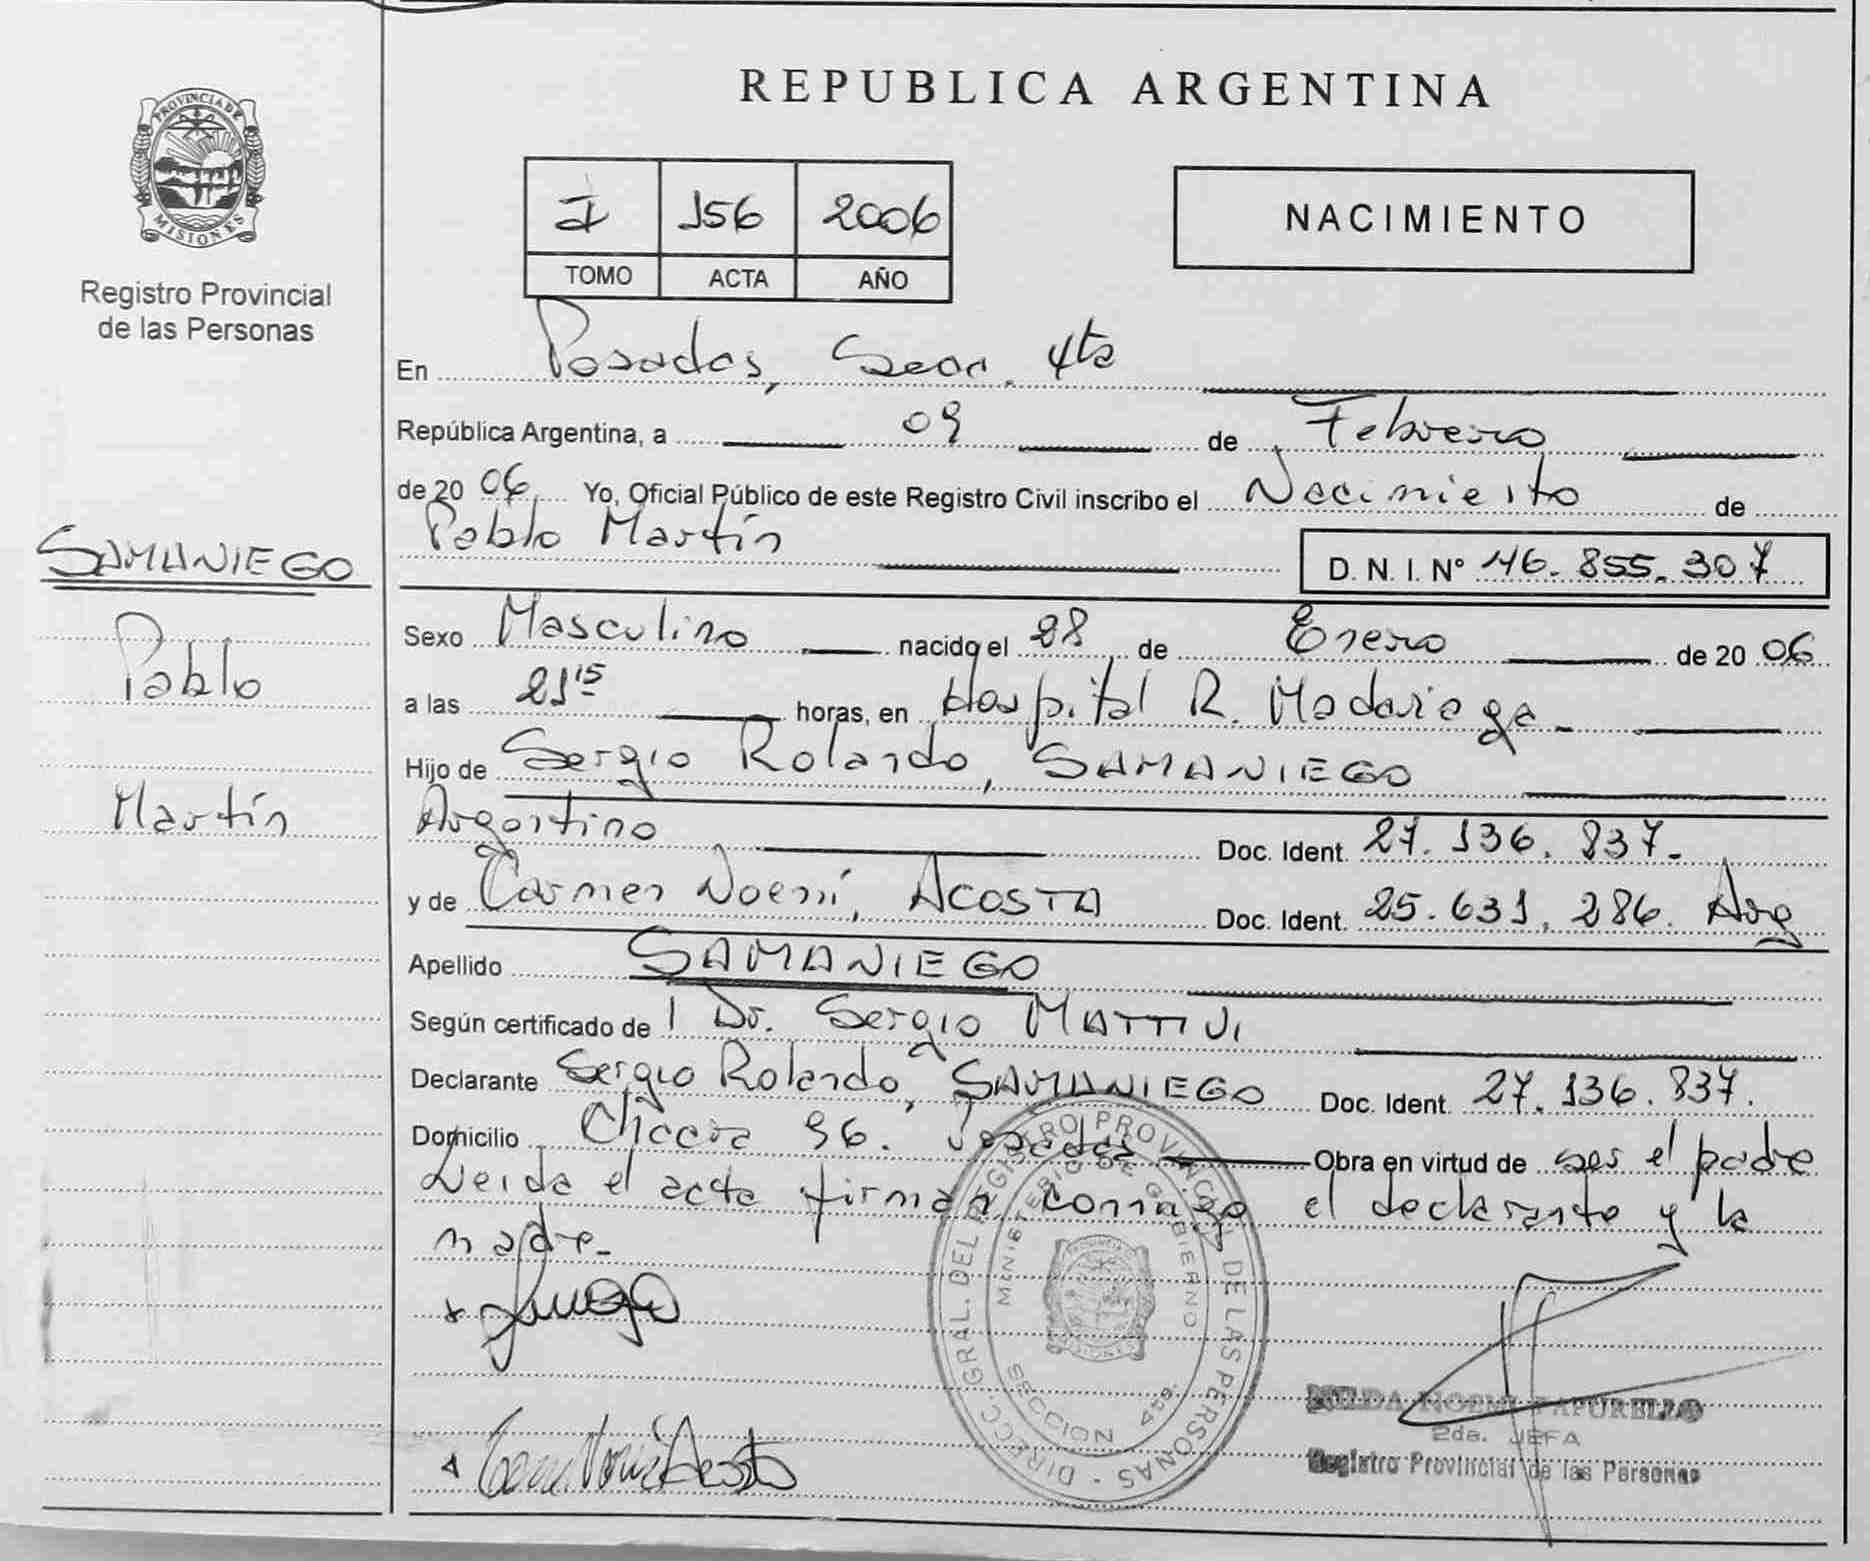 PROVINCIA DE
MISIONES
Registro Provincial
de las Personas
SAMANIEGO
Pablo
Martín
REPUBLICA ARGENTINA
I 156 2006
TOMO ACTA AÑO
NACIMIENTO
En Posadas, Secc. 4ta
República Argentina, a 09 de Febrero
de 20 06 Yo, Oficial Público de este Registro Civil inscribo el Nacimiento de
Pablo Martín D. N. I. Nº 46. 855. 307
Sexo Masculino nacido el 28 de Enero de 20 06
a las 21 15 horas, en Hospital R. Madariaga
Hijo de Sergio Rolando, SAMANIEGO
Argentino Doc. Ident. 27. 136. 837.
y de Carmen Noemí, ACOSTA Doc. Ident. 25. 631. 286. Arg
Apellido SAMANIEGO
Según certificado de l Dr. Sergio MATTIVI
Declarante Sergio Rolando, SAMANIEGO Doc. Ident. 27. 136. 837.
Domicilio Chacra 96. Posadas Obra en virtud de ser el padre
Leida el acta firman conmigo el declarante y la
madre.
DIRECC. GRAL. DEL REGISTRO PROVINCIAL DE LAS PERSONAS
MINISTERIO DE GOBIERNO
SECCION 4ta.
PROVINCIA DE
MISIONES
NOEMI PAPURELLO
2da. JEFA
Registro Provincial de las Personas